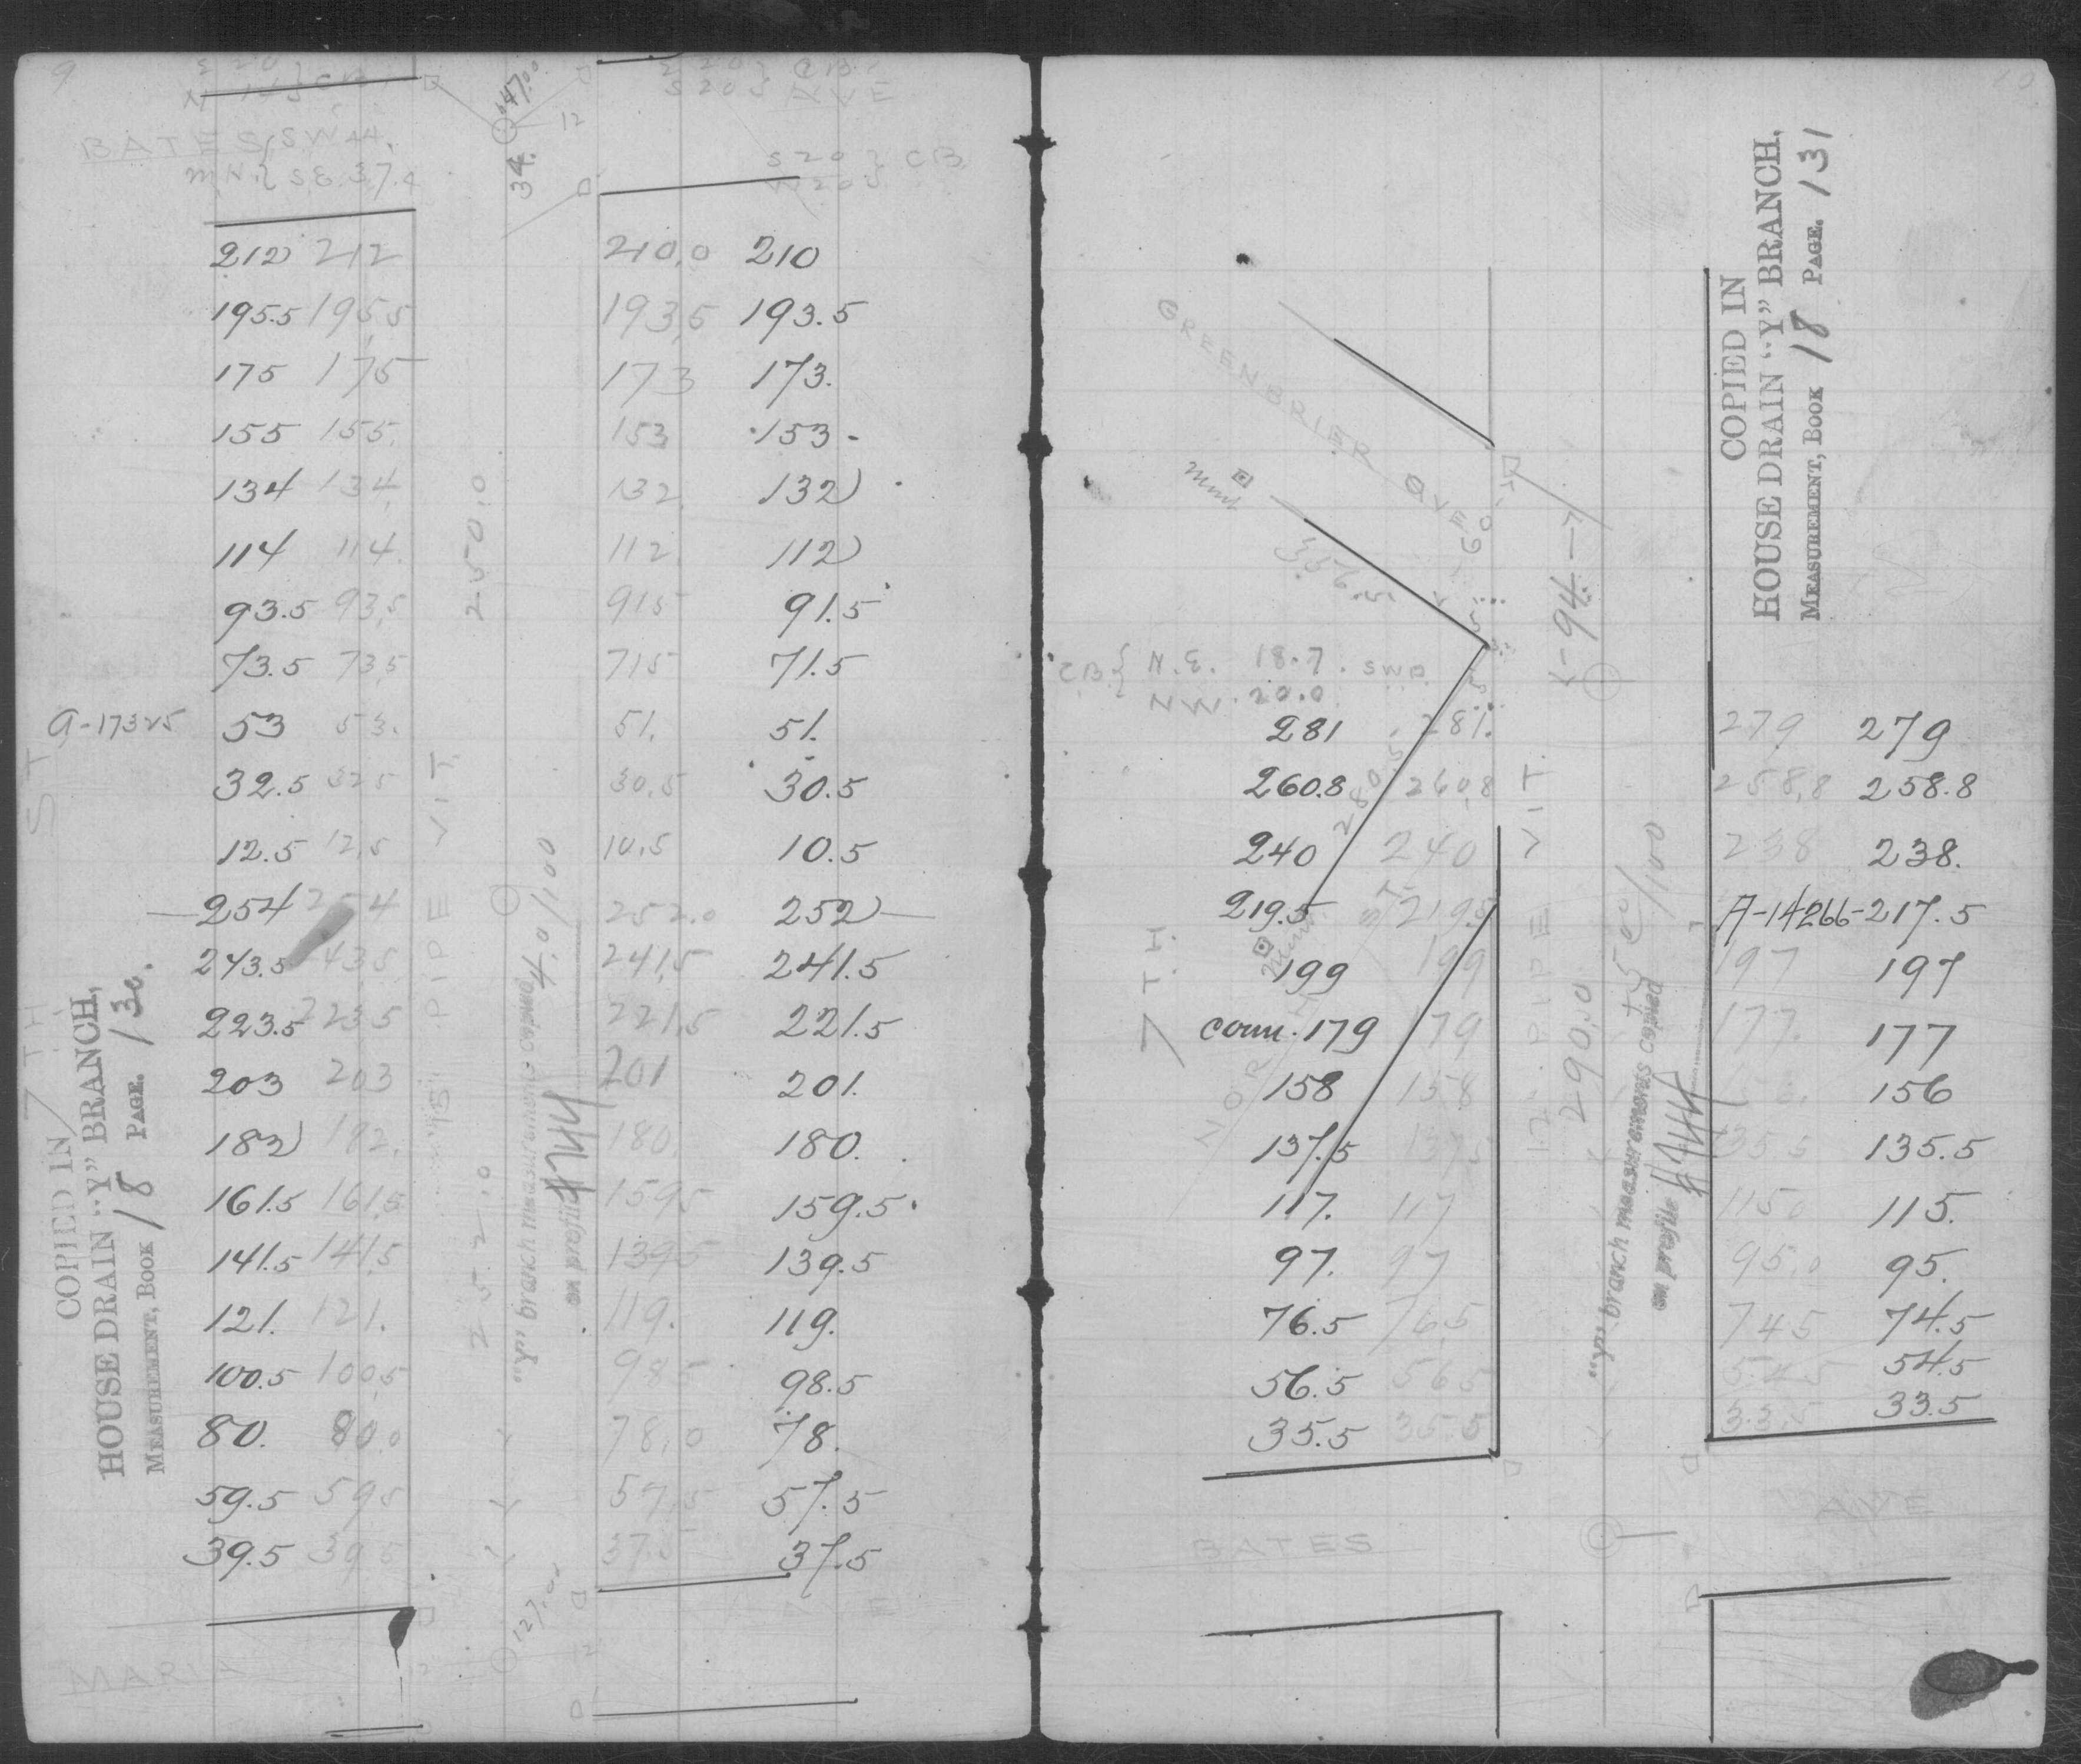 9
BATES SW 44.
S20 } CB
34.
212 212 210.0 210
195.5 195.5 193.5 193.5
175 175 173 173.
155 155. 153 153
134 134 132 132
114 114. 112. 112
93.5 93.5 91.5 91.5
73.5 73.5 71.5 71.5
53 53. 51. 51.
32.5 32.5 30.5 30.5
12.5 12.5 10.5 10.5
254 254 252.0 252
243.5 241.5 241.5
223.5 223.5 221.5 221.5
203 203 201 201.
183 182. 180. 180.
161.5 161.5 159.5 159.5
141.5 141.5 139.5 139.5
121. 121. 119. 119.
100.5 100.5 98.5 98.5
80. 80.0 78.0 78.
59.5 59.5 57.5 57.5
39.5 39.5 37.5 37.5
MARIA
7TH ST
250.0
252.0
PIPE VIT.
4.0/100
"Y" branch measurements copied
on profile
127.00
COPIED IN
HOUSE DRAIN "Y" BRANCH,
MEASUREMENT, BOOK 18 PAGE. 130.
10
GREENBRIER AVE
mmt
60
94
CB } N.E. 18.7. SWD
N.W. 20.0
281 281. 279 279
260.8 260.8 258.8 258.8
240 240 238 238.
219.5 219.5 A-14266-217.5
199 199 197 197
conn. 179 179 177. 177
158 158 156
137.5 137.5 135.5 135.5
117. 117 115.0 115.
97. 97 95.0 95.
76.5 76.5 74.5 74.5
56.5 56.5 54.5 54.5
35.5 35.5 33.5 33.5
BATES AVE
7TH ST
NORTH
280.5
12" PIPE VIT.
290.0
"Y" branch measurements copied
on profile
COPIED IN
HOUSE DRAIN "Y" BRANCH,
MEASUREMENT, BOOK 18 PAGE. 131